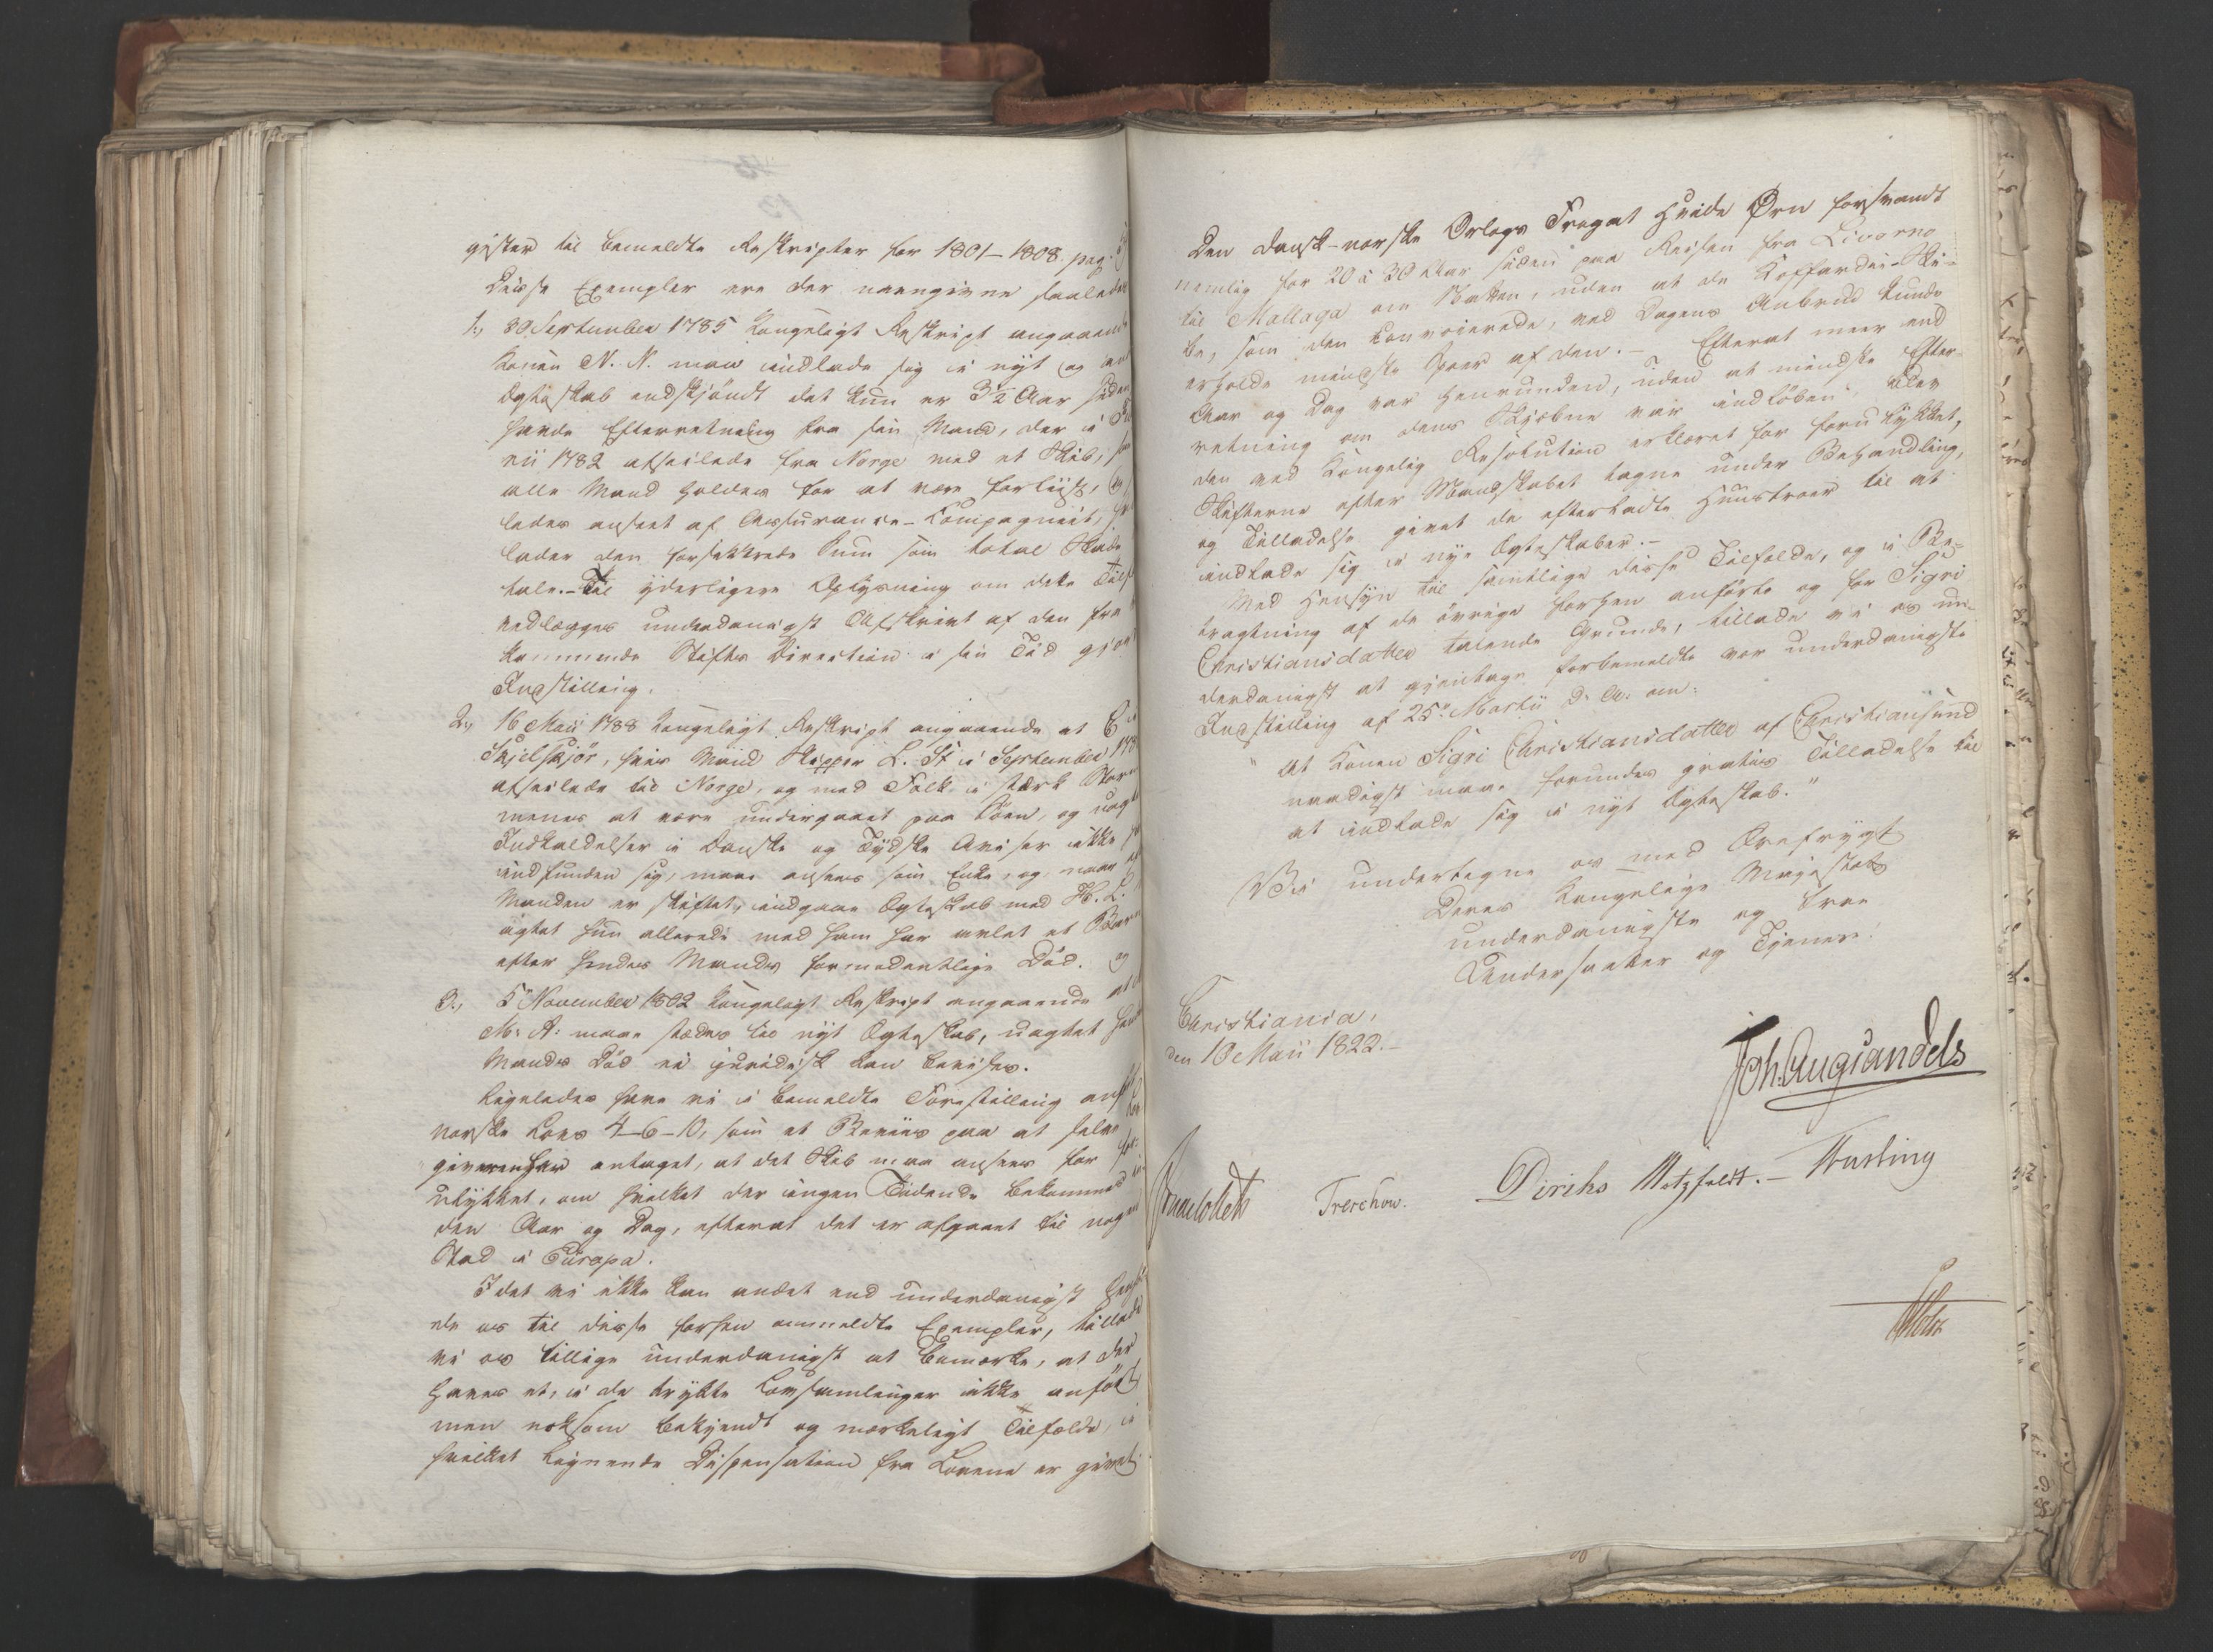 gister til bemeldte Reskripter for 1801–1808 pag.
Disse Exempler ere der navngivne saaledes
1., 30 September 1785 Kongeligt Reskript angaaende
Konen N. N. maa indlade sig i nyt
Ægteskab endskjöndt det kun er 3½ Aar siden
havde Efterretning fra sin Mand, der i
1782 afseilede fra Norge med et Skib,
alle Mand holdes for at være forliist,
lades anseet af Assurance-Compagniet,
lader den forsikkrede Sum som total Skade
tale. – Til yderligere Oplysning om dette
vedlægges underdanigst Afskrivt af den fra
kommende Stifts Direction i sin Tid
Indstilling.
2., 16 Maii 1788 Kongeligt Reskript angaaende at
Skjelskjör, hvis Mand Skipper L. St i September
afseilede til Norge, og med Folk i stærk Storm
menes at være undergaaet paa Söen, og
Indkaldelser i Danske og Tydske Aviser ikke
indfunden sig, maae ansees som Enke, og naar
Manden er skiftet, indgaae Ægteskab med H. L.
agtet hun allerede med ham har avlet et Barn
efter hendes Mands formodentlige Död. og
3., 5 November 1802 Kongeligt Reskript angaaende at
M: A: maae stædes til nyt Ægteskab, uagtet
Mands Död ei juridisk kan bevises.
Ligeledes have vi i bemeldte Forestilling
norske Lovs 4–6–10, som et Beviis paa at selve
giveren har antaget, at det Skib maa ansees for
ulykket, om hvilket der ingen Tidende bekommes
den Aar og Dag, efterat det er afgaaet til
Stad i Europa.
I det vi ikke kan andet end underdanigst
de os til disse forhen ommeldte Exempler, tillade
vi os tillige underdanigst at bemærke, at der
haves et, i de trykte Lovsamlinger ikke anfört
men noksom bekjendt og mærkeligt Tilfælde, i
hvilket lignende Dispensation fra Lovene er givet.
Den dansk-norske Orlogs Fregat Hvide Ørn forsvandt
nemlig for 20 à 30 Aar siden paa Reisen fra Livorno
til Mallaga om Natten, uden at de Koffardie-Ski-
be, som den convoierede, ved Dagens Anbrud kunde
erholde mindste Spoer af den. – Efterat meer end
Aar og Dag var henrunden, uden at mindste Efter-
retning om dens Skjæbne var indlöben, blev
den ved Kongelig Resolution erklæret for forulykket,
Skifterne efter Mandskabet tagne under Behandling,
og Tilladelse givet de efterladte Huustroer til at
indlade sig i nye Ægteskaber. –
Med Hensyn til samtlige disse Tilfælde, og i Be-
tragtning af de övrige forhen anförte og for Sigri
Christiansdatter talende Grunde, tillade vi os un-
derdanigst at gjentage forbemeldte vor underdanigste
Indstilling af 25de Martii d. A. om:
"At Konen Sigri Christiansdatter af Christiansund
naadigst maae forundes gratis Tilladelse til
at indlade sig i nyt Ægteskab."
Vi undertegne os med Ærefrygt
Deres Kongelige Majestæts
underdanigste og troe
Undersaatter og Tjenere.
Christiania,
den 10 Maii 1822. –
Joh. Aug Sandels
Treschow.
Diriks Motzfeldt. –
Holst